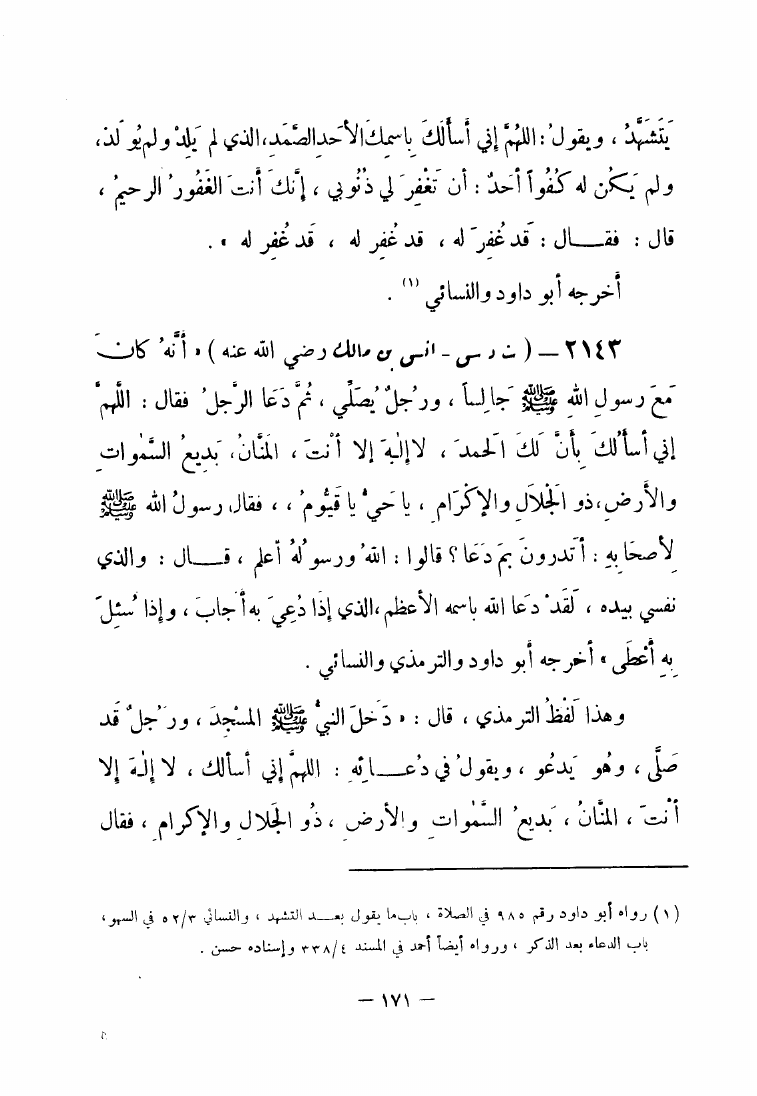 يَتَشَهَّدُ ، ويقولُ : اللهُمَّ إني أسألُكَ باسمِكَ الأحدِ الصَّمَدِ، الذي لم يَلِدْ ولم يُولَدْ،
ولم يَكُن له كُفُواً أحَدٌ : أن تَغْفِرَ لي ذُنُوبي ، إنَّكَ أنتَ الغَفُورُ الرحيمُ ،
قال : فقـــال : قد غُفِرَ له ، قد غُفِر له ، قد غُفِر له » .
أخرجه أبو داود والنسائي (١) .
٢١٤٣ — ( ت د س - أنس بن مالك رضي الله عنه ) « أنَّهُ كان
مَعَ رسولِ الله ﷺ جَالِساً ، ورَجُلٌ يُصَلِّي ، ثُمَّ دَعَا الرَّجلُ فقال : اللَّهمَّ
إني أسأَلُكَ بِأنَّ لَكَ الحمدَ ، لا إلٰهَ إلا أنْتَ ، المَنَّانُ، بَدِيعُ السَّمٰواتِ
والأرضِ، ذو الجَلالِ والإكْرَامِ ، يا حَيُّ يا قَيُّومُ ، ، فقال رسولُ الله ﷺ
لأصحَابِهِ : أتدرونَ بِمَ دَعَا ؟ قالوا : اللهُ ورسولُهُ أعلم ، قـــال : والذي
نفسي بيده ، لَقَدْ دَعَا الله باسمه الأعظم، الذي إذا دُعِيَ به أجابَ ، وإذا سُئِلَ
بِهِ أعْطَى » أخرجه أبو داود والترمذي والنسائي .
وهذا لَفْظُ الترمذي ، قال : « دَخلَ النبيُّ ﷺ المسْجِدَ ، ورَجُلٌ قَد
صَلَّى ، وهُو يَدعُو ، ويقولُ في دُعـــائِهِ : اللهمَّ إني أسألك ، لا إلٰهَ إلا
أنْتَ ، المنَّانُ ، بَديعُ السَّمٰواتِ والأرضِ ، ذُو الجَلالِ والإكرامِ ، فقال
(١) رواه أبو داود رقم ٩٨٥ في الصلاة ، باب ما يقول بعـــد التشهد ، والنسائي ٥٢/٣ في السهو،
باب الدعاء بعد الذكر ، ورواه أيضاً أحمد في المسند ٣٣٨/٤ وإسناده حسن .
— ١٧١ —